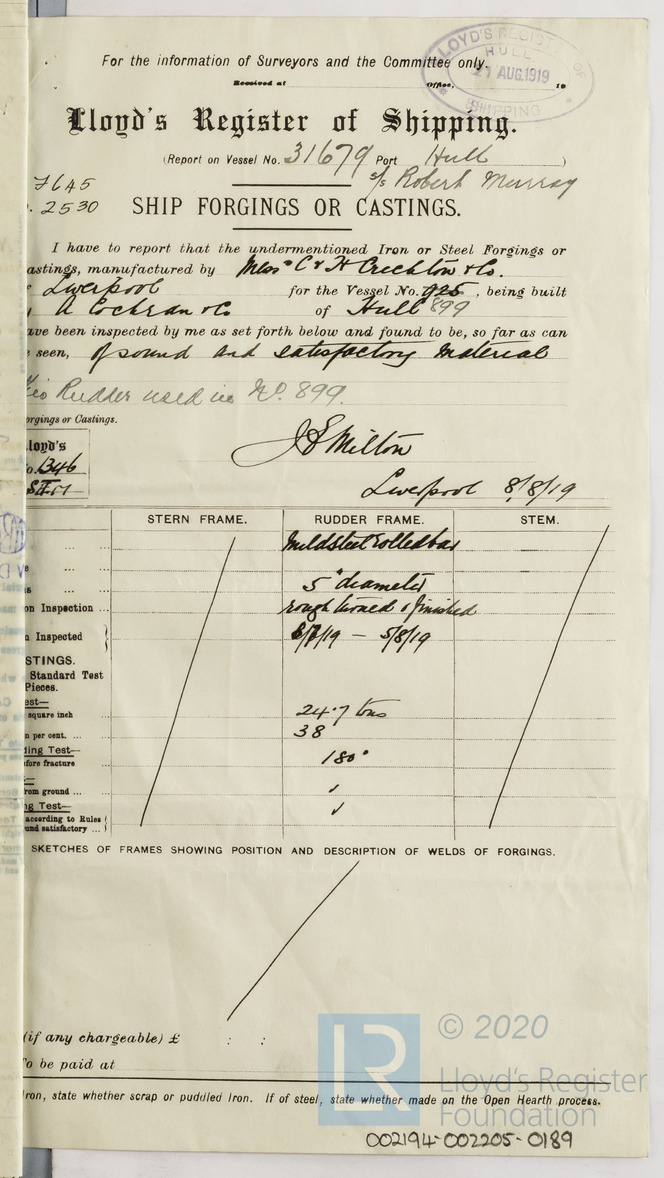 For the information of Surveyors and the Committee only.
LLOYD'S REGISTER OF SHIPPING
HULL
21 AUG.1919
Received at Office, 19
Lloyd's Register of Shipping.
(Report on Vessel No. 31679 Port Hull )
s/s Robert Murray
7645
2530
SHIP FORGINGS OR CASTINGS.
I have to report that the undermentioned Iron or Steel Forgings or
astings, manufactured by Messrs C & H Crichton & Co.
Liverpool for the Vessel No. 925, being built
A Cochran & Co of Hull 899
ave been inspected by me as set forth below and found to be, so far as can
seen, of sound and satisfactory material
Rudder used in No. 899.
orgings or Castings.
loyd's
o. 1346
J S Milton
Liverpool 8/8/19
STERN FRAME. RUDDER FRAME. STEM.
... ... Mild steel rolled bar
... ...
... ... 5" diameter
on Inspection ... rough turned & finished
n Inspected } /19 — 5/8/19
STINGS.
Standard Test
Pieces.
est—
square inch 24.7 tons
n per cent. ... 38
ding Test—
fore fracture 180°
from ground ... ✓
ng Test—
according to Rules
und satisfactory ... } ✓
SKETCHES OF FRAMES SHOWING POSITION AND DESCRIPTION OF WELDS OF FORGINGS.
(if any chargeable) £ : :
To be paid at
Iron, state whether scrap or puddled Iron. If of steel, state whether made on the Open Hearth process.
LR
© 2020
Lloyd's Register
Foundation
002194-002205-0189